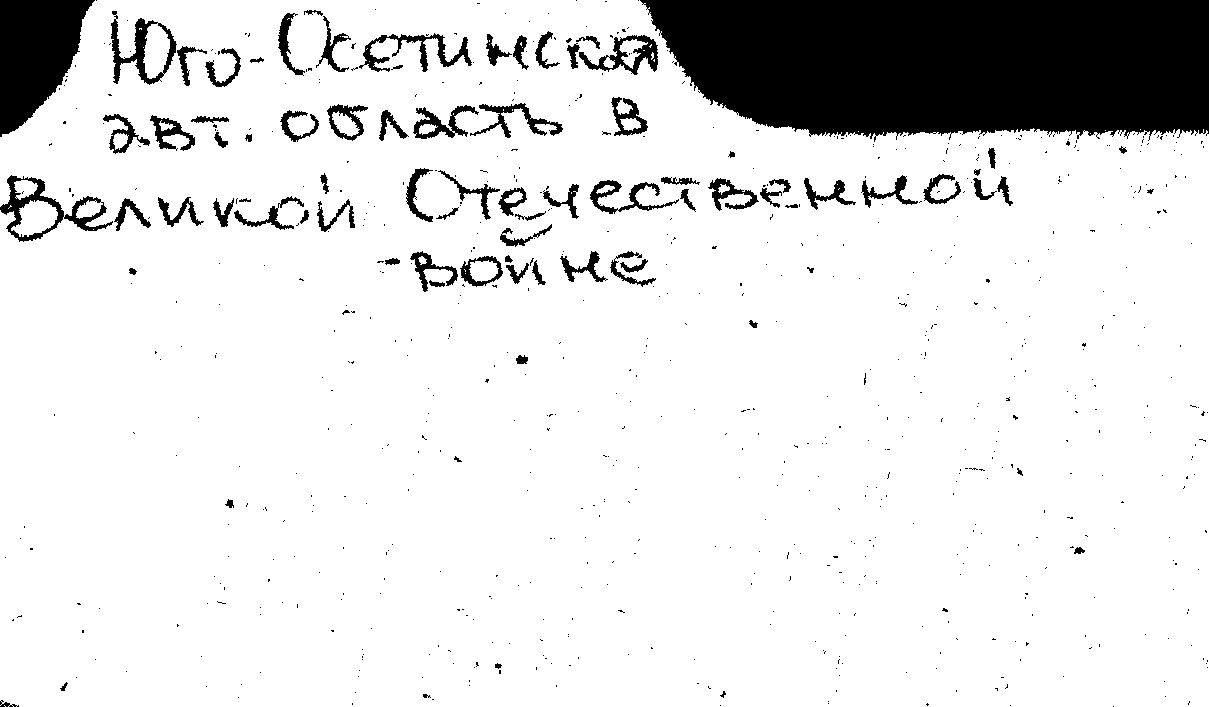 Юго-Осетинская
авт. область в
Великой Отечественной
-войне